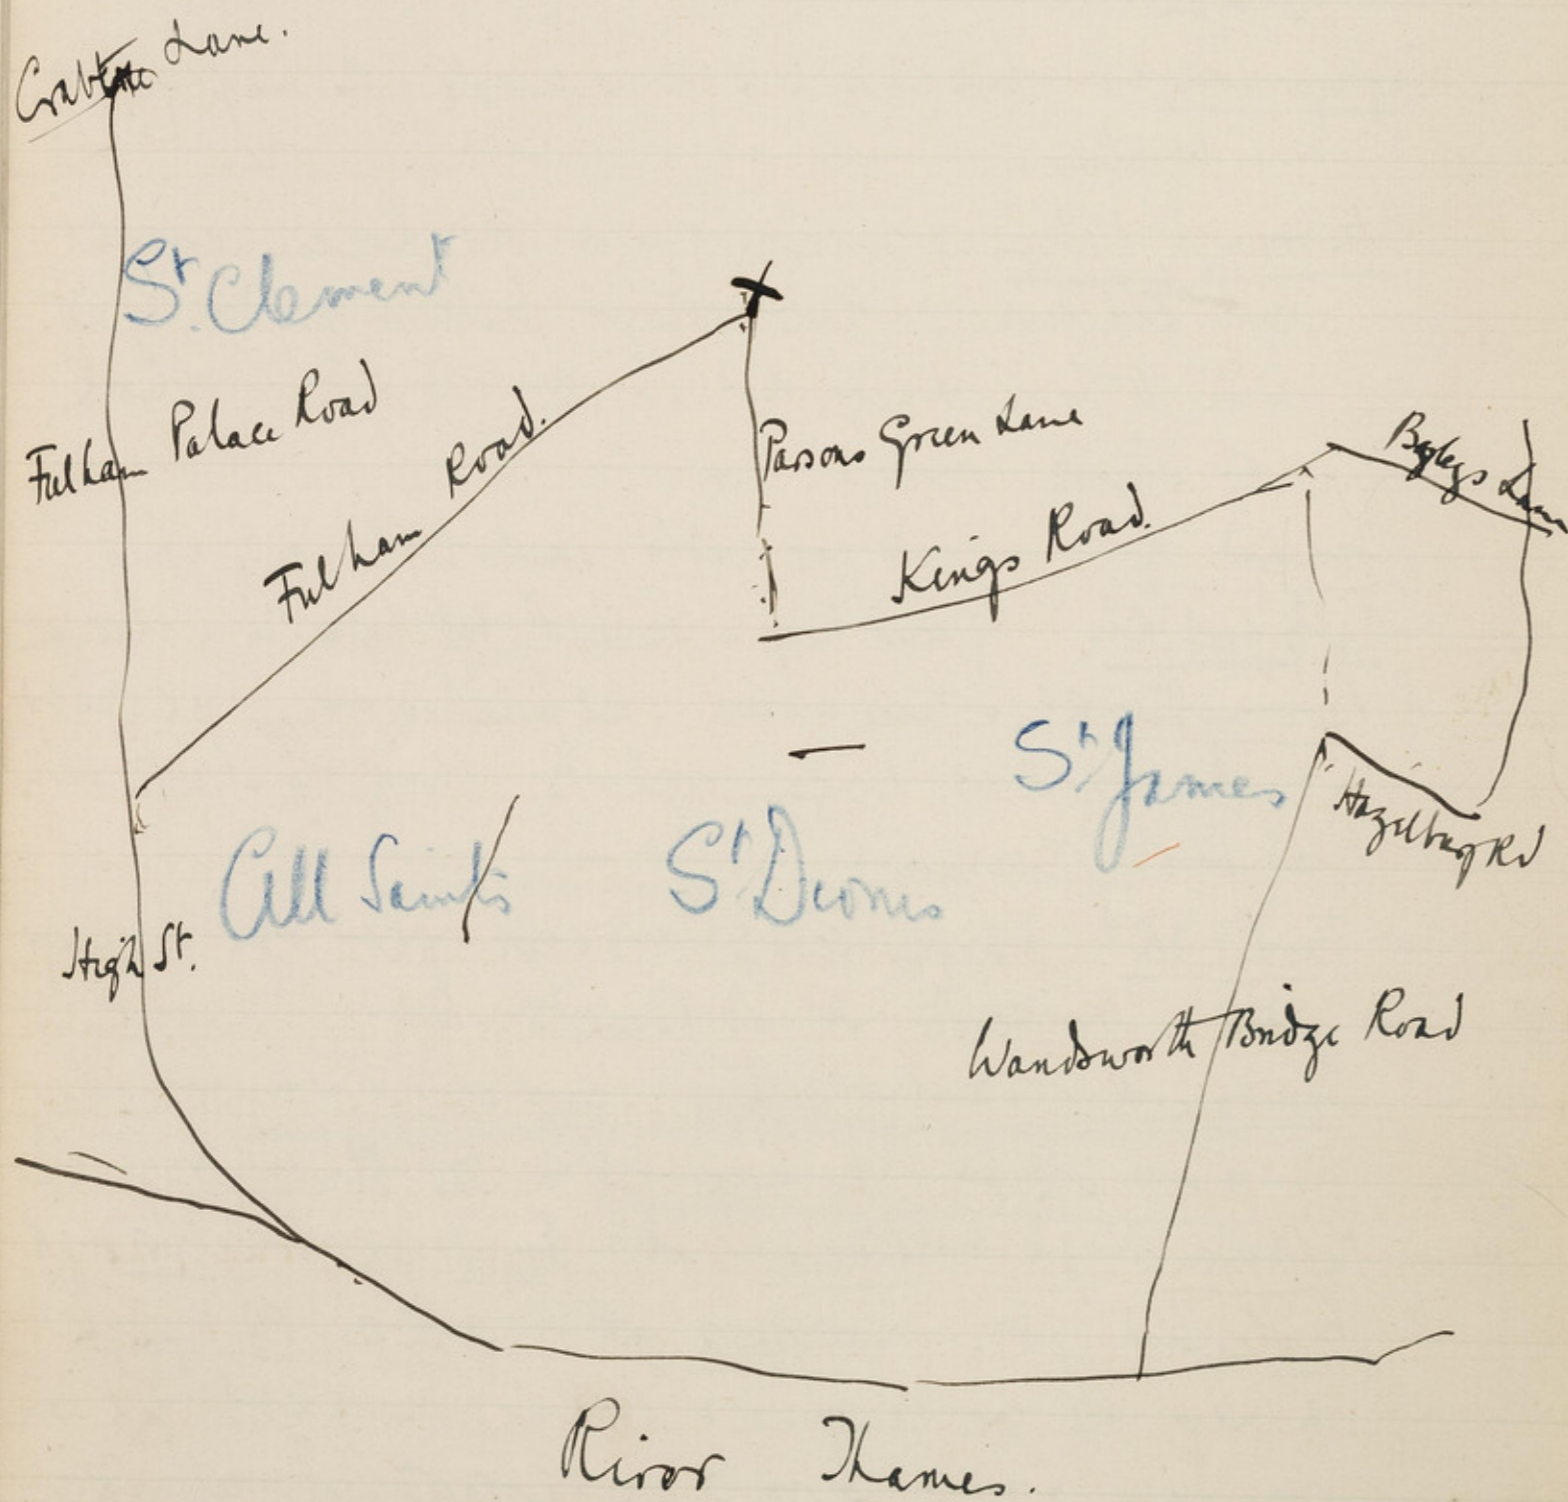 Crabtree Lane.
St. Clement
Fulham Palace Road
Fulham Road.
Parsons Green Lane
Kings Road.
Bagleys Lane
St James
Hazelbury Rd
All Saints
St Dionis
High St.
Wandsworth Bridge Road
River Thames.